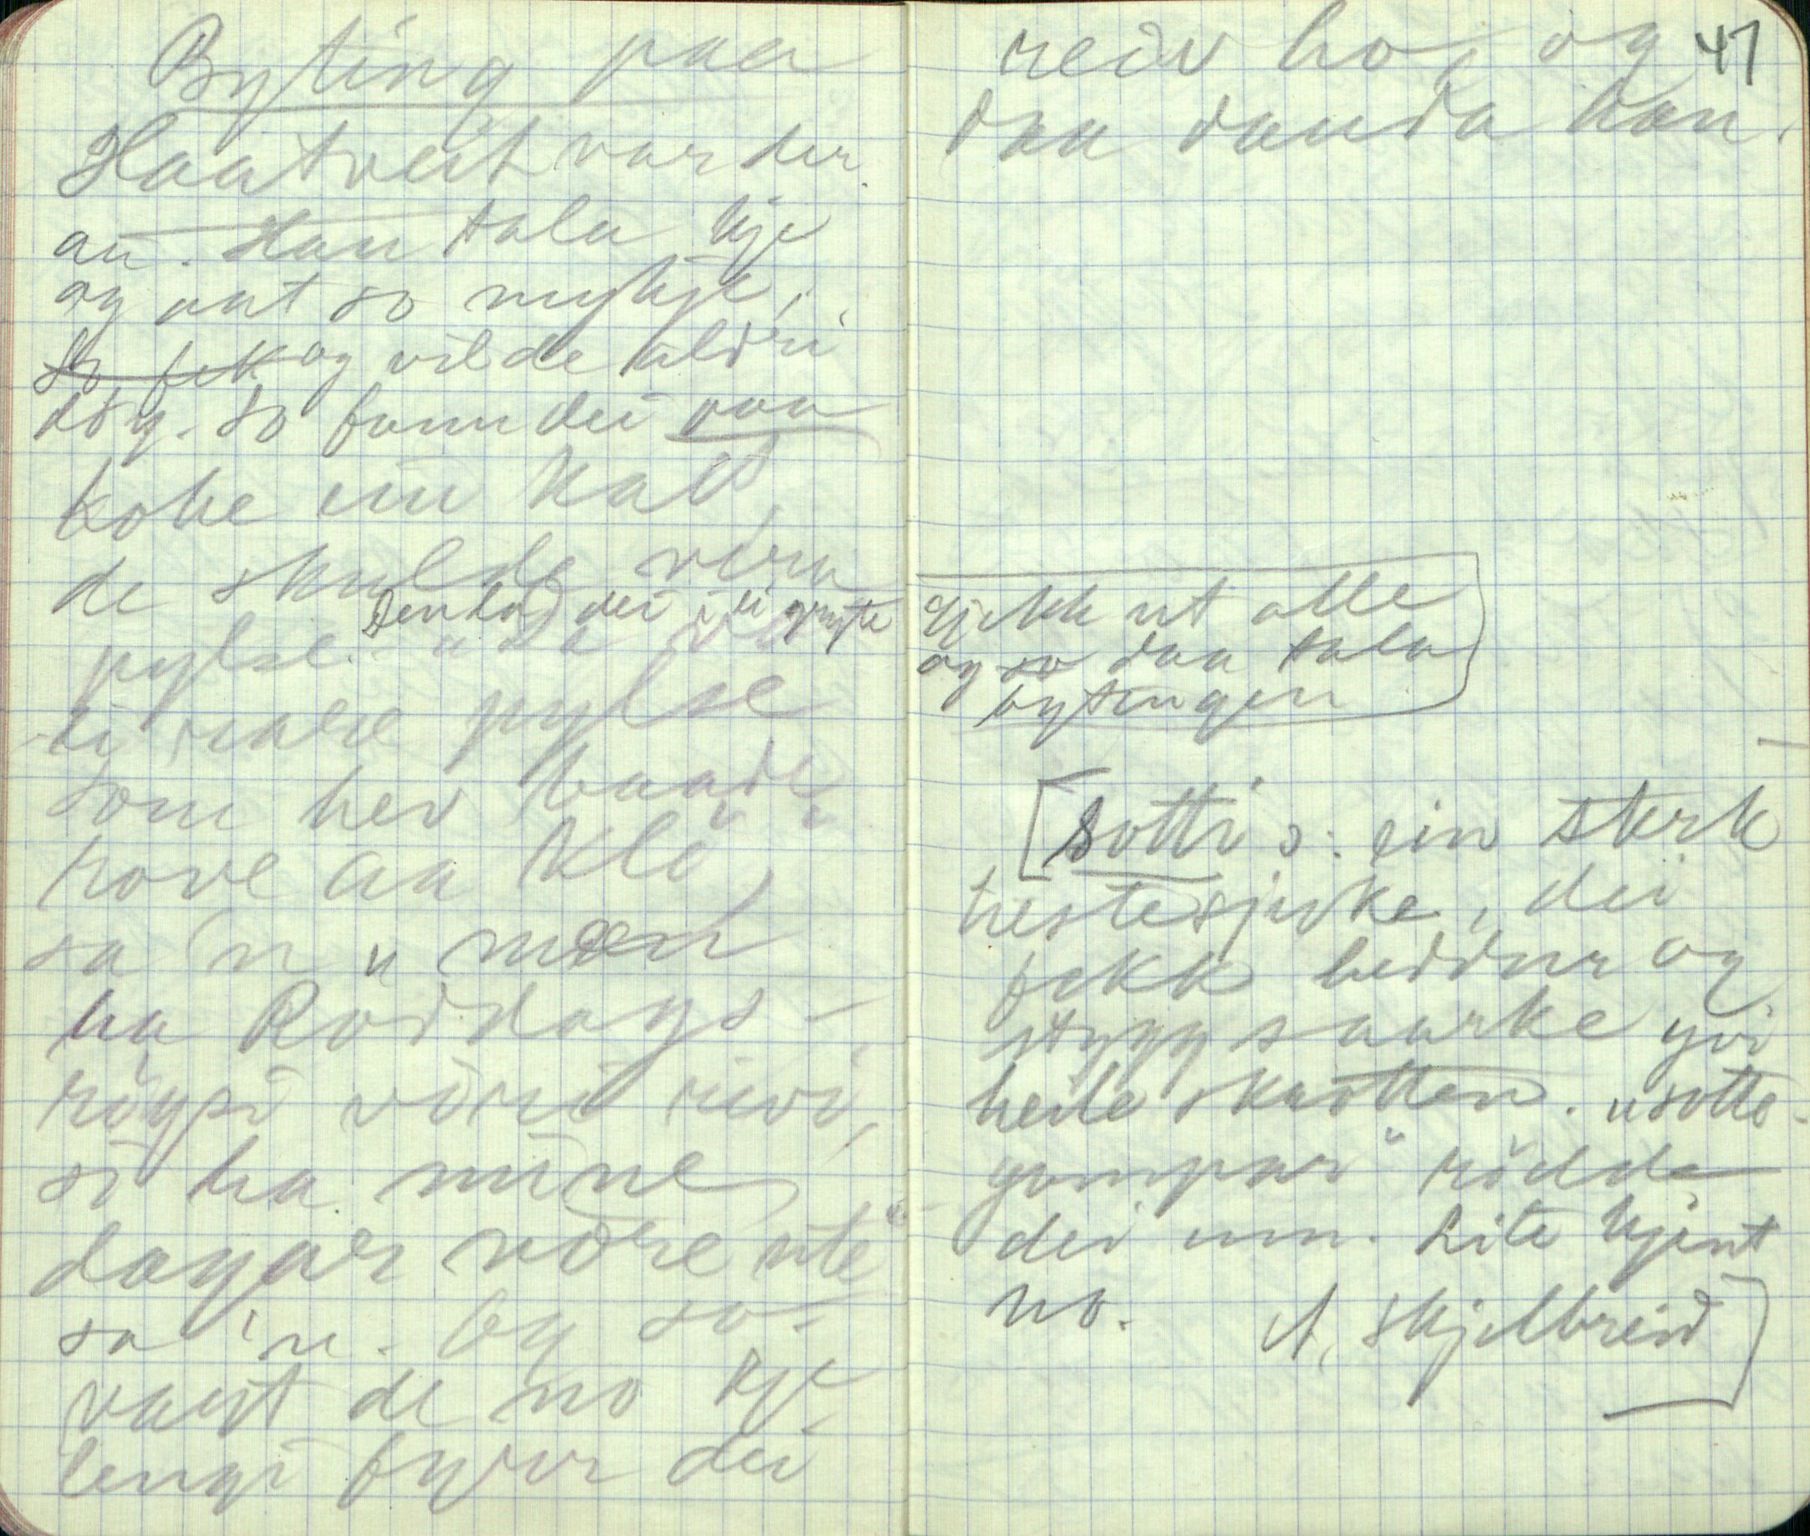 Byting paa
Haatveit var der
ein. Han tala kje
og aat so mykje,
so fek og vilde aldri
döy. So fann dei paa
koke ein katt,
de skulde vera
pylse. Den la dei i ei gryte
"Aa
ti rare pylse
som hev baade
rove aa klö,"
sa 'n "men
ha Röddags-
röysi vöri rivi,
so ha mine
dagar vöre ute"
sa 'n. Og so
vart de no kje
lengi fyrr dei
47
reiv ho, og
daa döuda han.
Gjekk ut alle
og so daa tala
bytingen
[Sotti ɔ: ein sterk
hestesjuke, dei
fekk beddur og
stygg saarke yvi
heile skrotten. "Sotte-
gampar" rödde
dei um. Lite kjent
no. A. Skjelbreid]